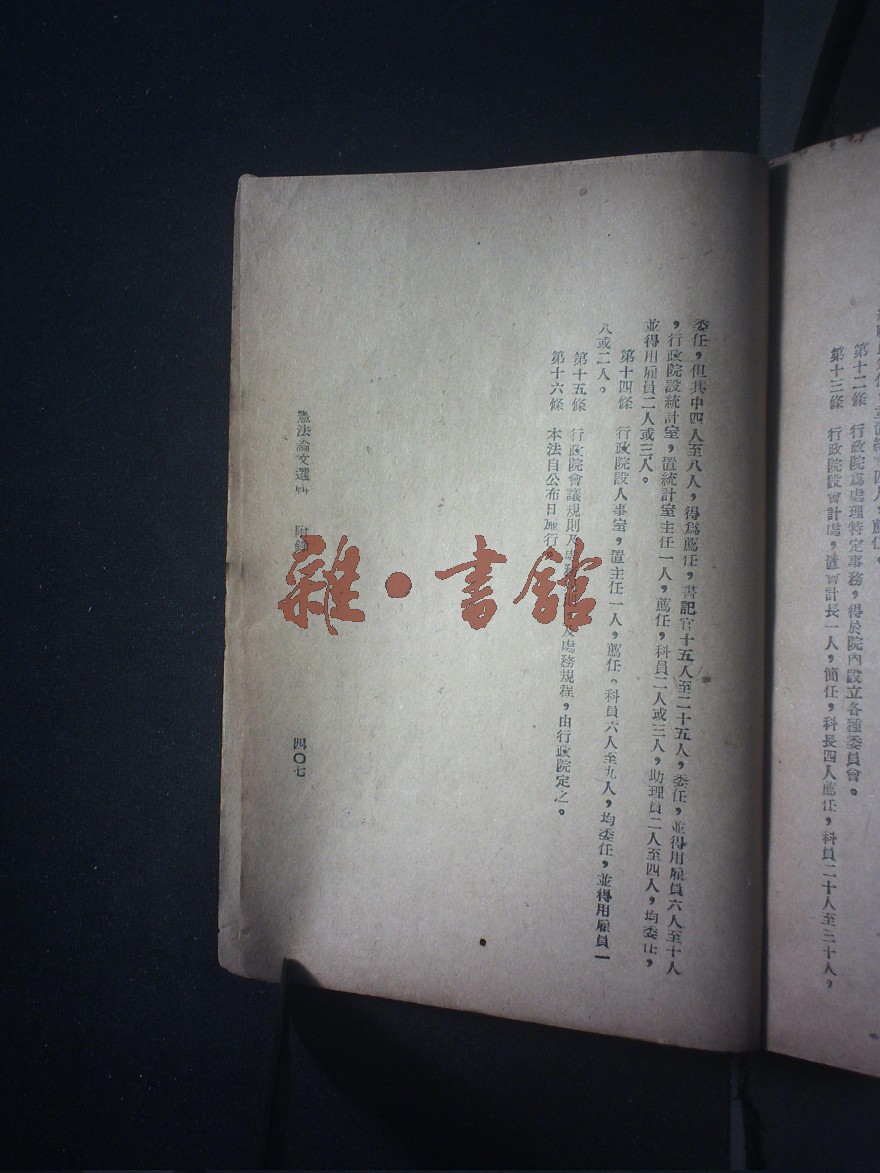 第十二條　行政院爲處理特定事務，得於院內設立各種委員會。
第十三條　行政院設會計處，置會計長一人，簡任，科長四人薦任，科員二十人至三十人，
委任，但其中四人至八人，得爲薦任，書記官十五人至二十五人，委任，並得用雇員六人至十人
，行政院設統計室，置統計室主任一人，薦任，科員二人或三人，助理員二人至四人，均委任，
並得用雇員二人或三人。
第十四條　行政院設人事室，置主任一人，薦任。科員六人至九人，均委任，並得用雇員一
人或二人。
第十五條　行政院會議規則及處務規程，由行政院定之。
第十六條　本法自公布日施行。
憲法論文選輯　附錄
四〇七
雜·書館